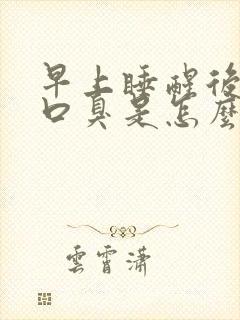 早上睡醒後
口臭是怎麼
雲霄瀟